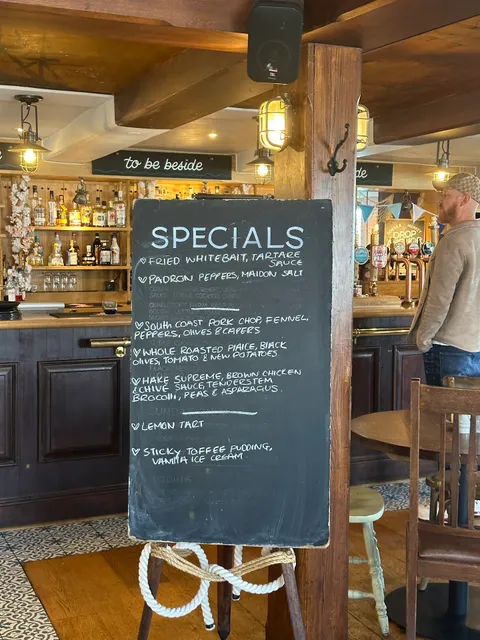 to be beside
de
DROP
SPECIALS
FRIED WHITEBAIT, TARTARE
SAUCE
PADRON PEPPERS, MALDON SALT
SOUTH COAST PORK CHOP, FENNEL,
PEPPERS, OLIVES & CAPERS
WHOLE ROASTED PLAICE, BLACK
OLIVES, TOMATO & NEW POTATOES
HAKE SUPREME, BROWN CHICKEN
& CHIVE SAUCE, TENDERSTEM
BROCOLI, PEAS & ASPARAGUS.
LEMON TART
STICKY TOFFEE PUDDING,
VANILLA ICE CREAM